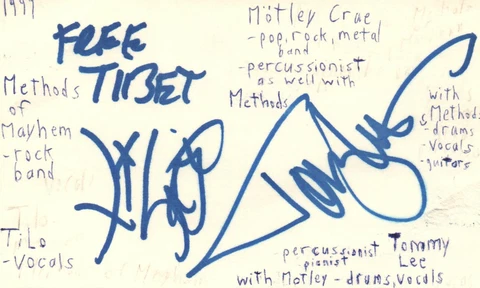 1999
FREE
TIBET
Mötley Crüe
-pop, rock, metal
band
-percussionist
as well with
Methods
Methods
of
Mayhem
-rock
band
with
Methods
-drums
-vocals
-guitars
TiLo
TiLo
-vocals
Tommy
-percussionist
pianist
Tommy
Lee
with Mötley - drums, vocals